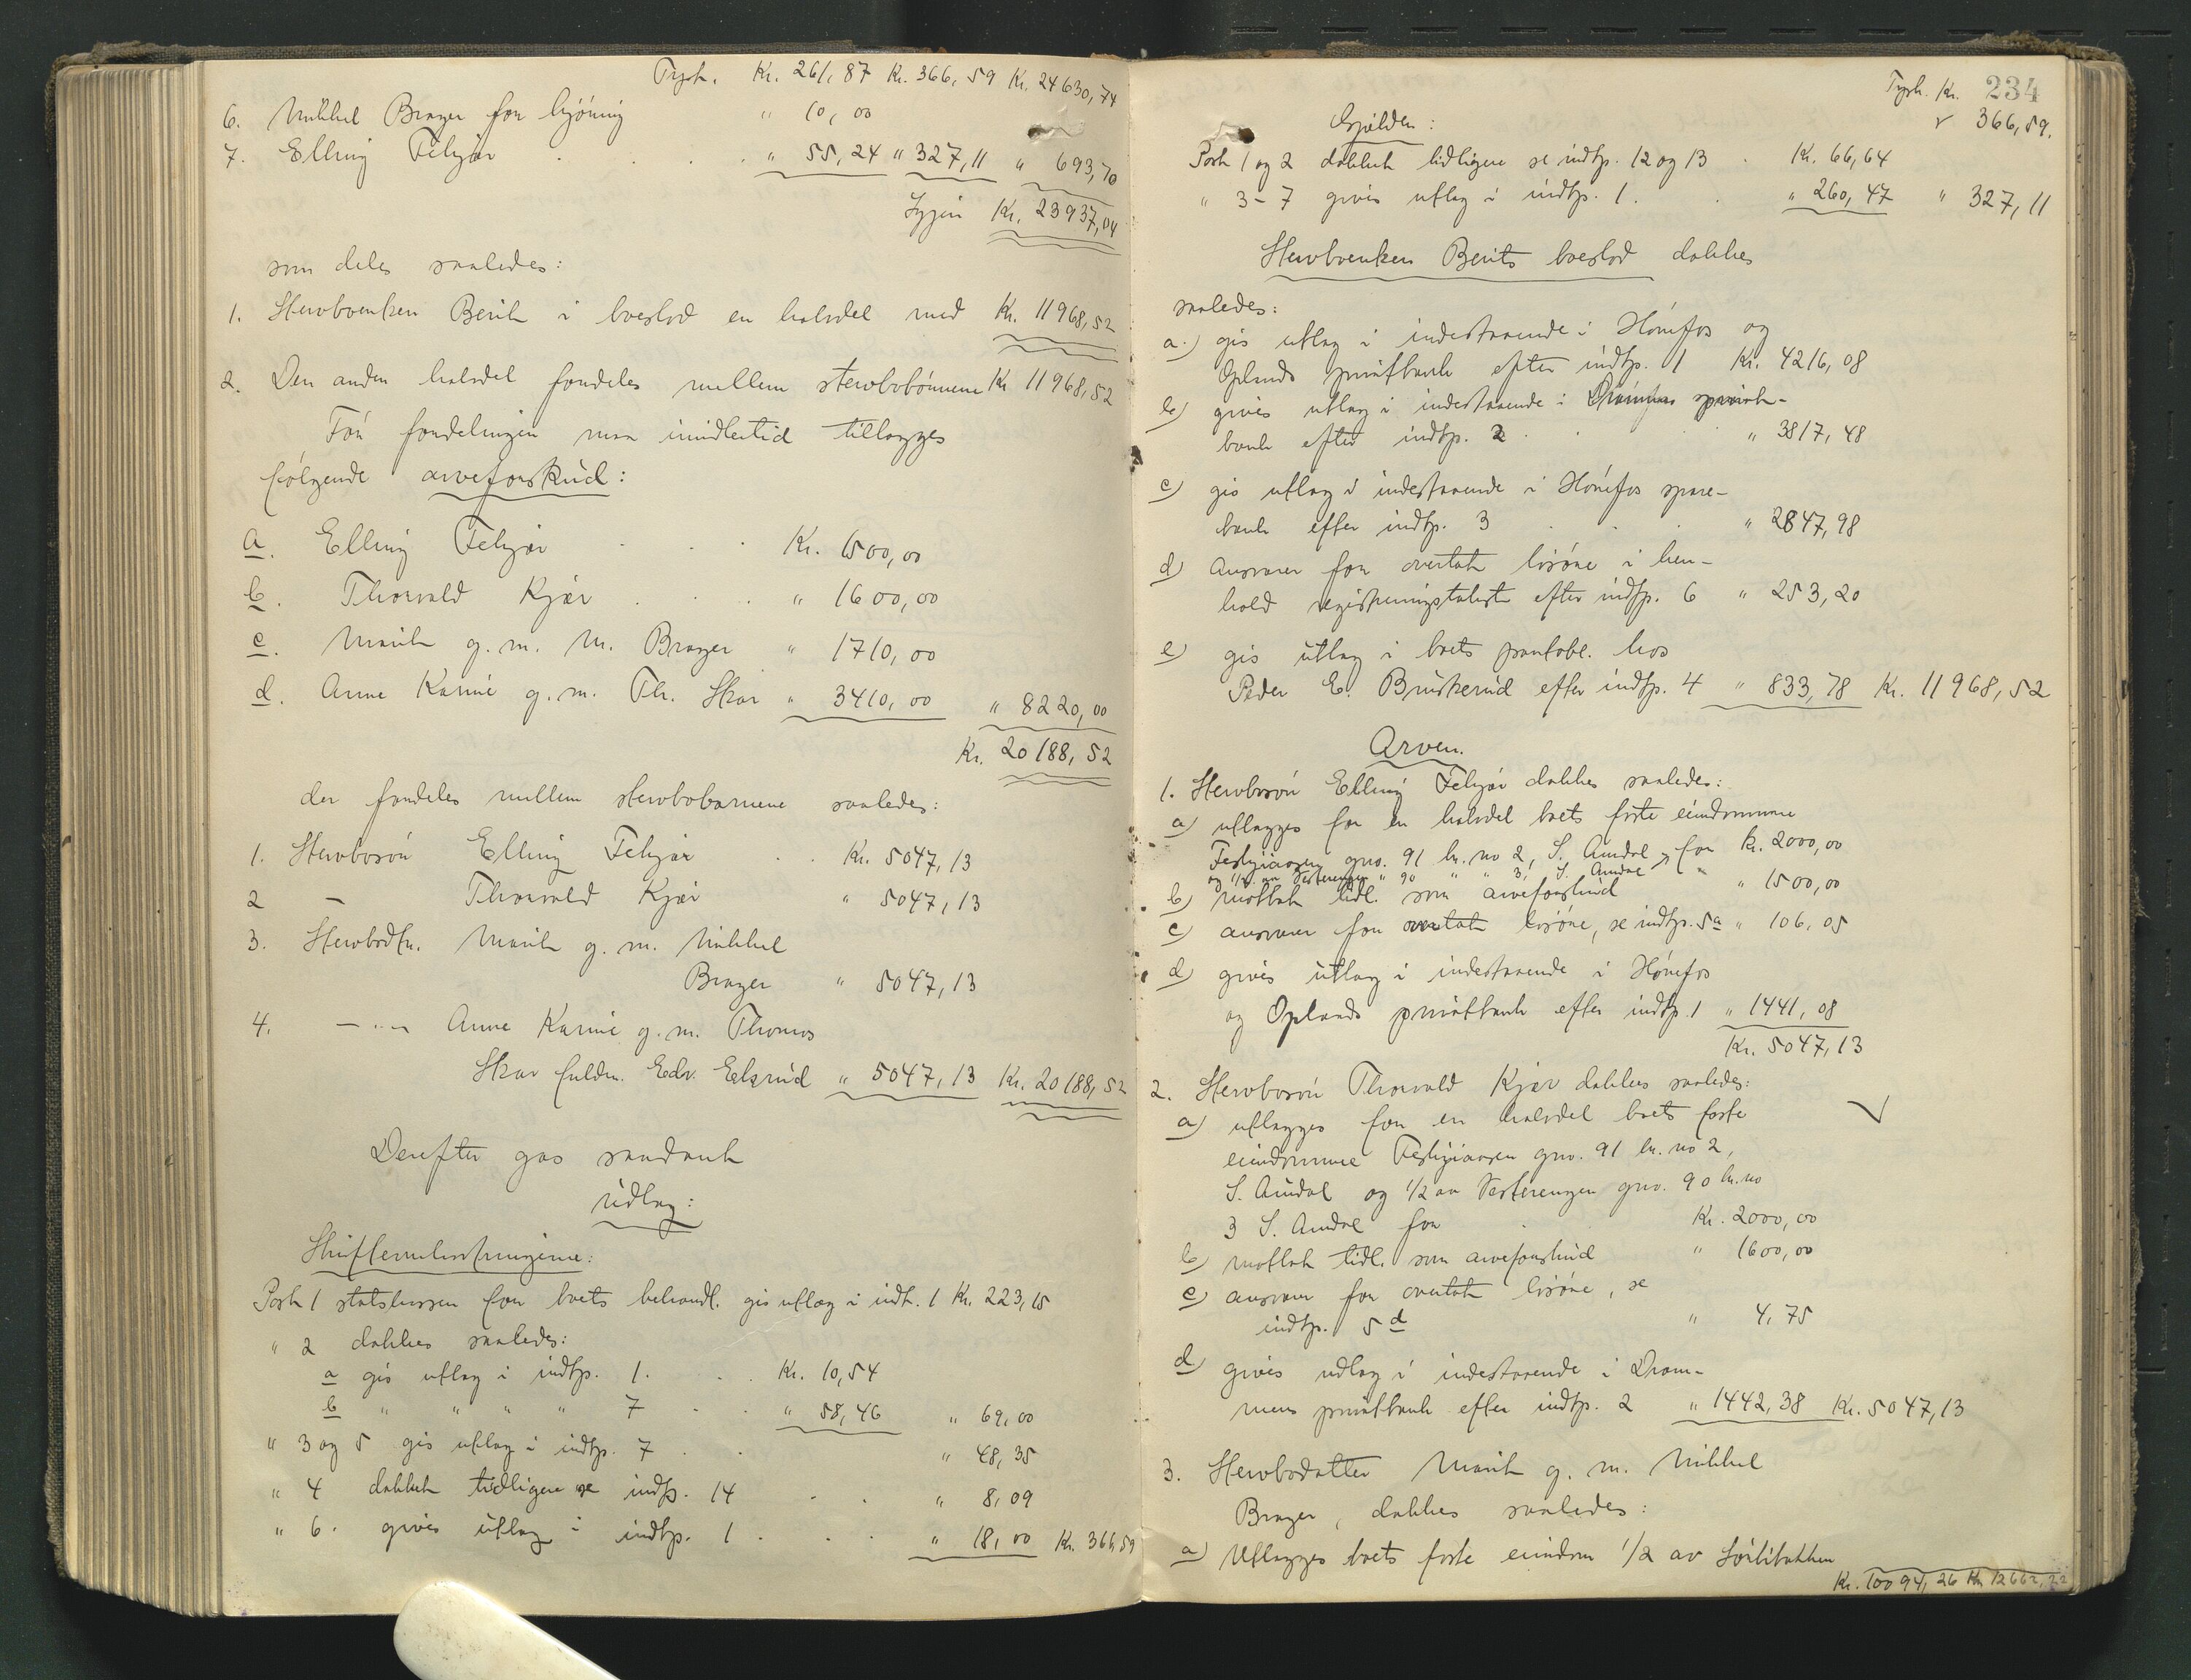 Trpt. Kr. 261,87 Kr. 366,59 Kr. 24630,74
6. Mikkel Brager for kjøring " 10,00
7. Elling Fekjær . . . . " 55,24 " 327,11 " 693,70
Igjen Kr. 23937,04
som deles saaledes:
1. Stervboenken Berit i boeslod en halvdel med Kr. 11968,52
2. Den anden halvdel fordeles mellem stervbobørnene Kr 11968,52
Før fordelingen maa imidlertid tillægges
følgende arveforskud:
a. Elling Fekjær . . . Kr. 1500,00
b. Thorvald Kjær . . . " 1600,00
c. Marit g. m. M. Brager " 1710,00
d. Anne Karine g. m. Th. Skar " 3410,00 " 8220,00
Kr. 20188,52
der fordeles mellem stervbobarnene saaledes:
1. Stervbosøn Elling Fekjær . . Kr. 5047,13
2 — Thorvald Kjær " 5047,13
3. Stervbodtr. Marit g. m. Mikkel
Brager " 5047,13
4. — " — Anne Karine g. m. Thomas
Skar fuldm. Edv. Elsrud " 5047,13 Kr. 20188,52
Derefter gøs saadant
Udlæg:
Skifteomkostningerne:
Post 1 statskassen for boets behandl. gis utlæg i indt. 1 Kr. 223,15
" 2 dækkes saaledes:
a gis utlæg i indtp. 1. . . Kr. 10,54
b " " " " 7 . . " 58,46 " 69,00
" 3 og 5 gis utlæg i indtp. 7 . . " 48,35
" 4 dækket tidligere se indtp. 14 . . " 8,09
" 6. gives utlæg i indtp. 1 . . . " 18,00 Kr. 366,59
234
Trpt. Kr.
366,59.
Gjælden:
Post 1 og 2 dækket tidligere se indtp. 12 og 13 . Kr. 66,64
" 3–7 gives utlæg i indtp. 1. . " 260,47 " 327,11
Stervboenken Berits boeslod dækkes
saaledes:
a.) gis utlæg i indestaaende i Hønefos og
Oplands privatbank efter indtp. 1 Kr. 4216,08
b) gives utlæg i indestaaende i Drammens privat-
bank efter indtp. 2 . . . " 3817,48
c) gis utlæg i indestaaende i Hønefos spare-
bank efter indtp. 3 . . . " 2847,98
d) ansvarer for overtat løsøre i hen-
hold registreringstakst efter indtp. 6 " 253,20
e) gis utlæg i boets pantobl. hos
Peder E. Bruskerud efter indtp. 4 " 833,78 Kr. 11968,52
Arven.
1. Stervbosøn Elling Fekjær dækkes saaledes:
a) utlægges for en halvdel boets faste eiendomme
gno. 91 br. no 2, S. Aurdal for Kr. 2000,00
og 1/2 av Vesterengen " 90 " " 3, S. Aurdal
b) mottat tidl. som arveforskud " 1500,00
c) ansvarer for overtat løsøre, se indtp. 5a " 106,05
d) gives utlæg i indestaaende i Hønefos
og Oplands privatbank efter indtp. 1 " 1441,08
Kr. 5047,13
2. Stervbosøn Thorvald Kjær dækkes saaledes:
a) utlægges for en halvdel boets faste
eiendomme gno. 91 br. no 2,
S. Aurdal og 1/2 av Vesterengen gno. 90 br. no
3 S. Aurdal for . . Kr. 2000,00
b) mottat tidl. som arveforskud " 1600,00
c) ansvarer for overtat løsøre, se
indtp. 5 d " 4,75
d) gives udlæg i indestaaende i Dram-
mens privatbank efter indtp. 2 " 1442,38 Kr. 5047,13
3. Stervbodatter Marit g. m. Mikkel
Brager, dækkes saaledes:
a) Utlægges boets faste eiendom 1/2 av
Kr. 10094,26 Kr. 12662,22